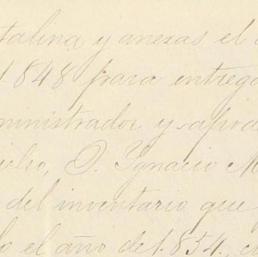 talina y anexas el
1848 para entrega
ministrador y apod
D. Ignacio M
del inventario que
lo el año de 1.854,